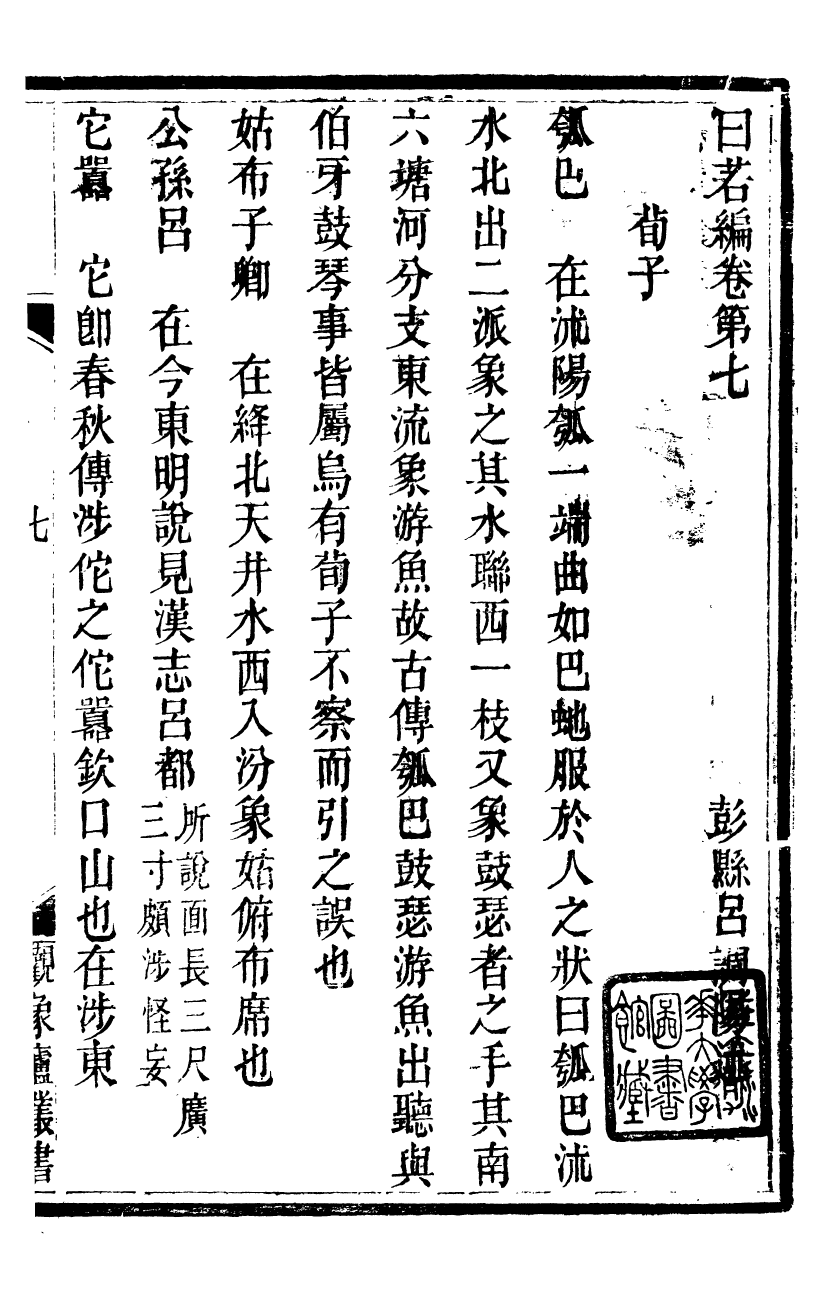 曰若編卷第七 彭縣呂調陽
荀子
瓠巴 在沭陽瓠一端曲如巴虵服於人之狀曰瓠巴沭
水北出二派象之其水聯西一枝又象鼓瑟者之手其南
六塘河分支東流象游魚故古傳瓠巴鼓瑟游魚出聽與
伯牙鼓琴事皆屬烏有荀子不察而引之誤也
姑布子卿 在絳北天井水西入汾象姑俯布席也
公孫呂 在今東明說見漢志呂都所說面長三尺廣
三寸頗涉怪妄
它囂 它卽春秋傳涉佗之佗囂欽口山也在涉東
七
觀象廬叢書